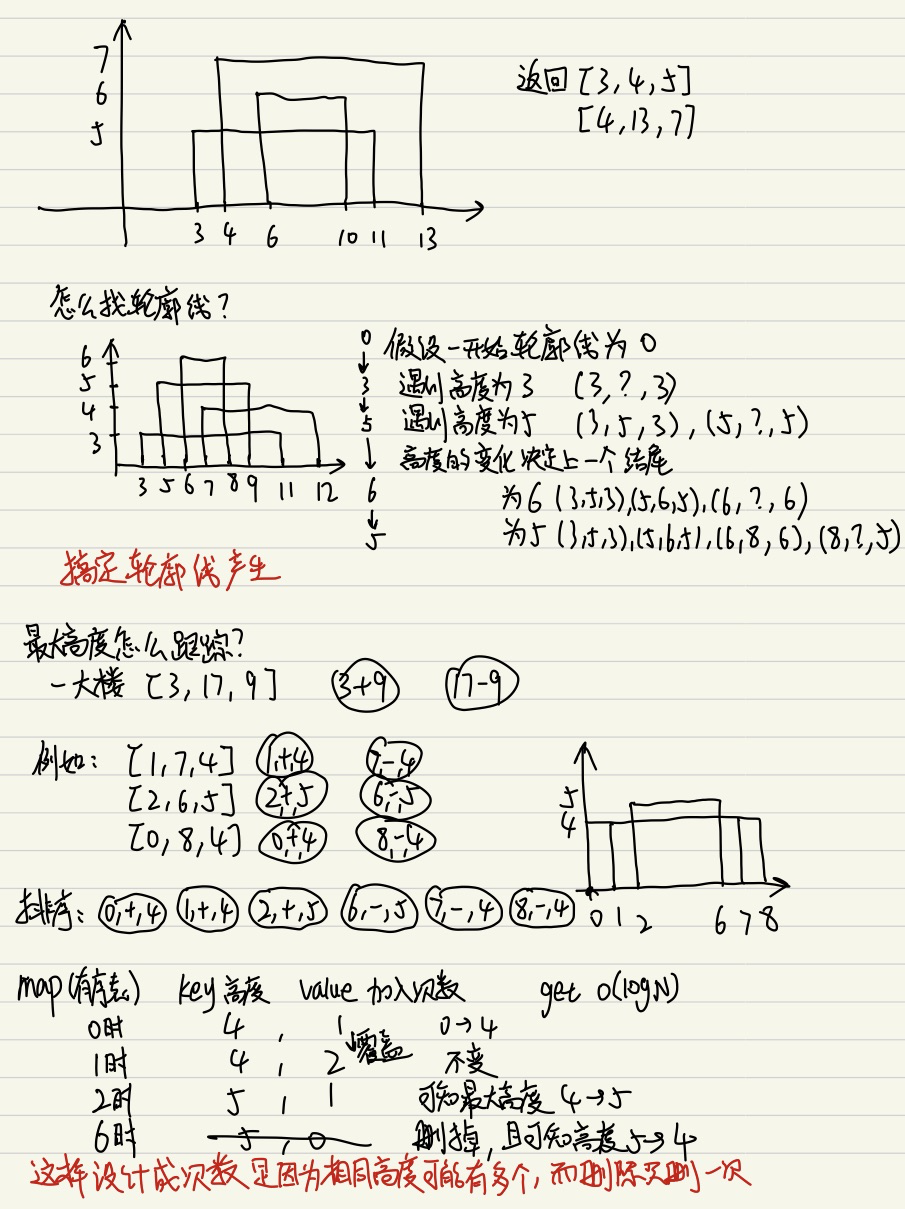 7
6
5
3 4 6 10 11 13
返回 [3,4,5]
[4,13,7]
怎么找轮廓线?
6
5
4
3
3 5 6 7 8 9 11 12
0 假设一开始轮廓线为 0
3 遇到高度为 3 (3,?,3)
5 遇到高度为 5 (3,5,3),(5,?,5)
高度的变化决定上一个结尾
6 为 6 (3,5,3),(5,6,5),(6,?,6)
5 为 5 (3,5,3),(5,6,5),(6,8,6),(8,?,5)
搞定轮廓线产生
最大高度怎么跟踪?
一大楼 [3,17,9] 3+9 17-9
例如: [1,7,4] 1,+,4 7,-,4
[2,6,5] 2,+,5 6,-,5
[0,8,4] 0,+,4 8,-,4
5
4
0 1 2 6 7 8
排序: 0,+,4 1,+,4 2,+,5 6,-,5 7,-,4 8,-,4
map(有序表) key 高度 value 加入次数 get O(logN)
0时 4 , 1 0→4
1时 4 , 2 覆盖 不变
2时 5 , 1 可知最大高度 4→5
6时 5 , 0 删掉,且可知高度 5→4
这样设计成次数是因为相同高度可能有多个,而删除只删一次